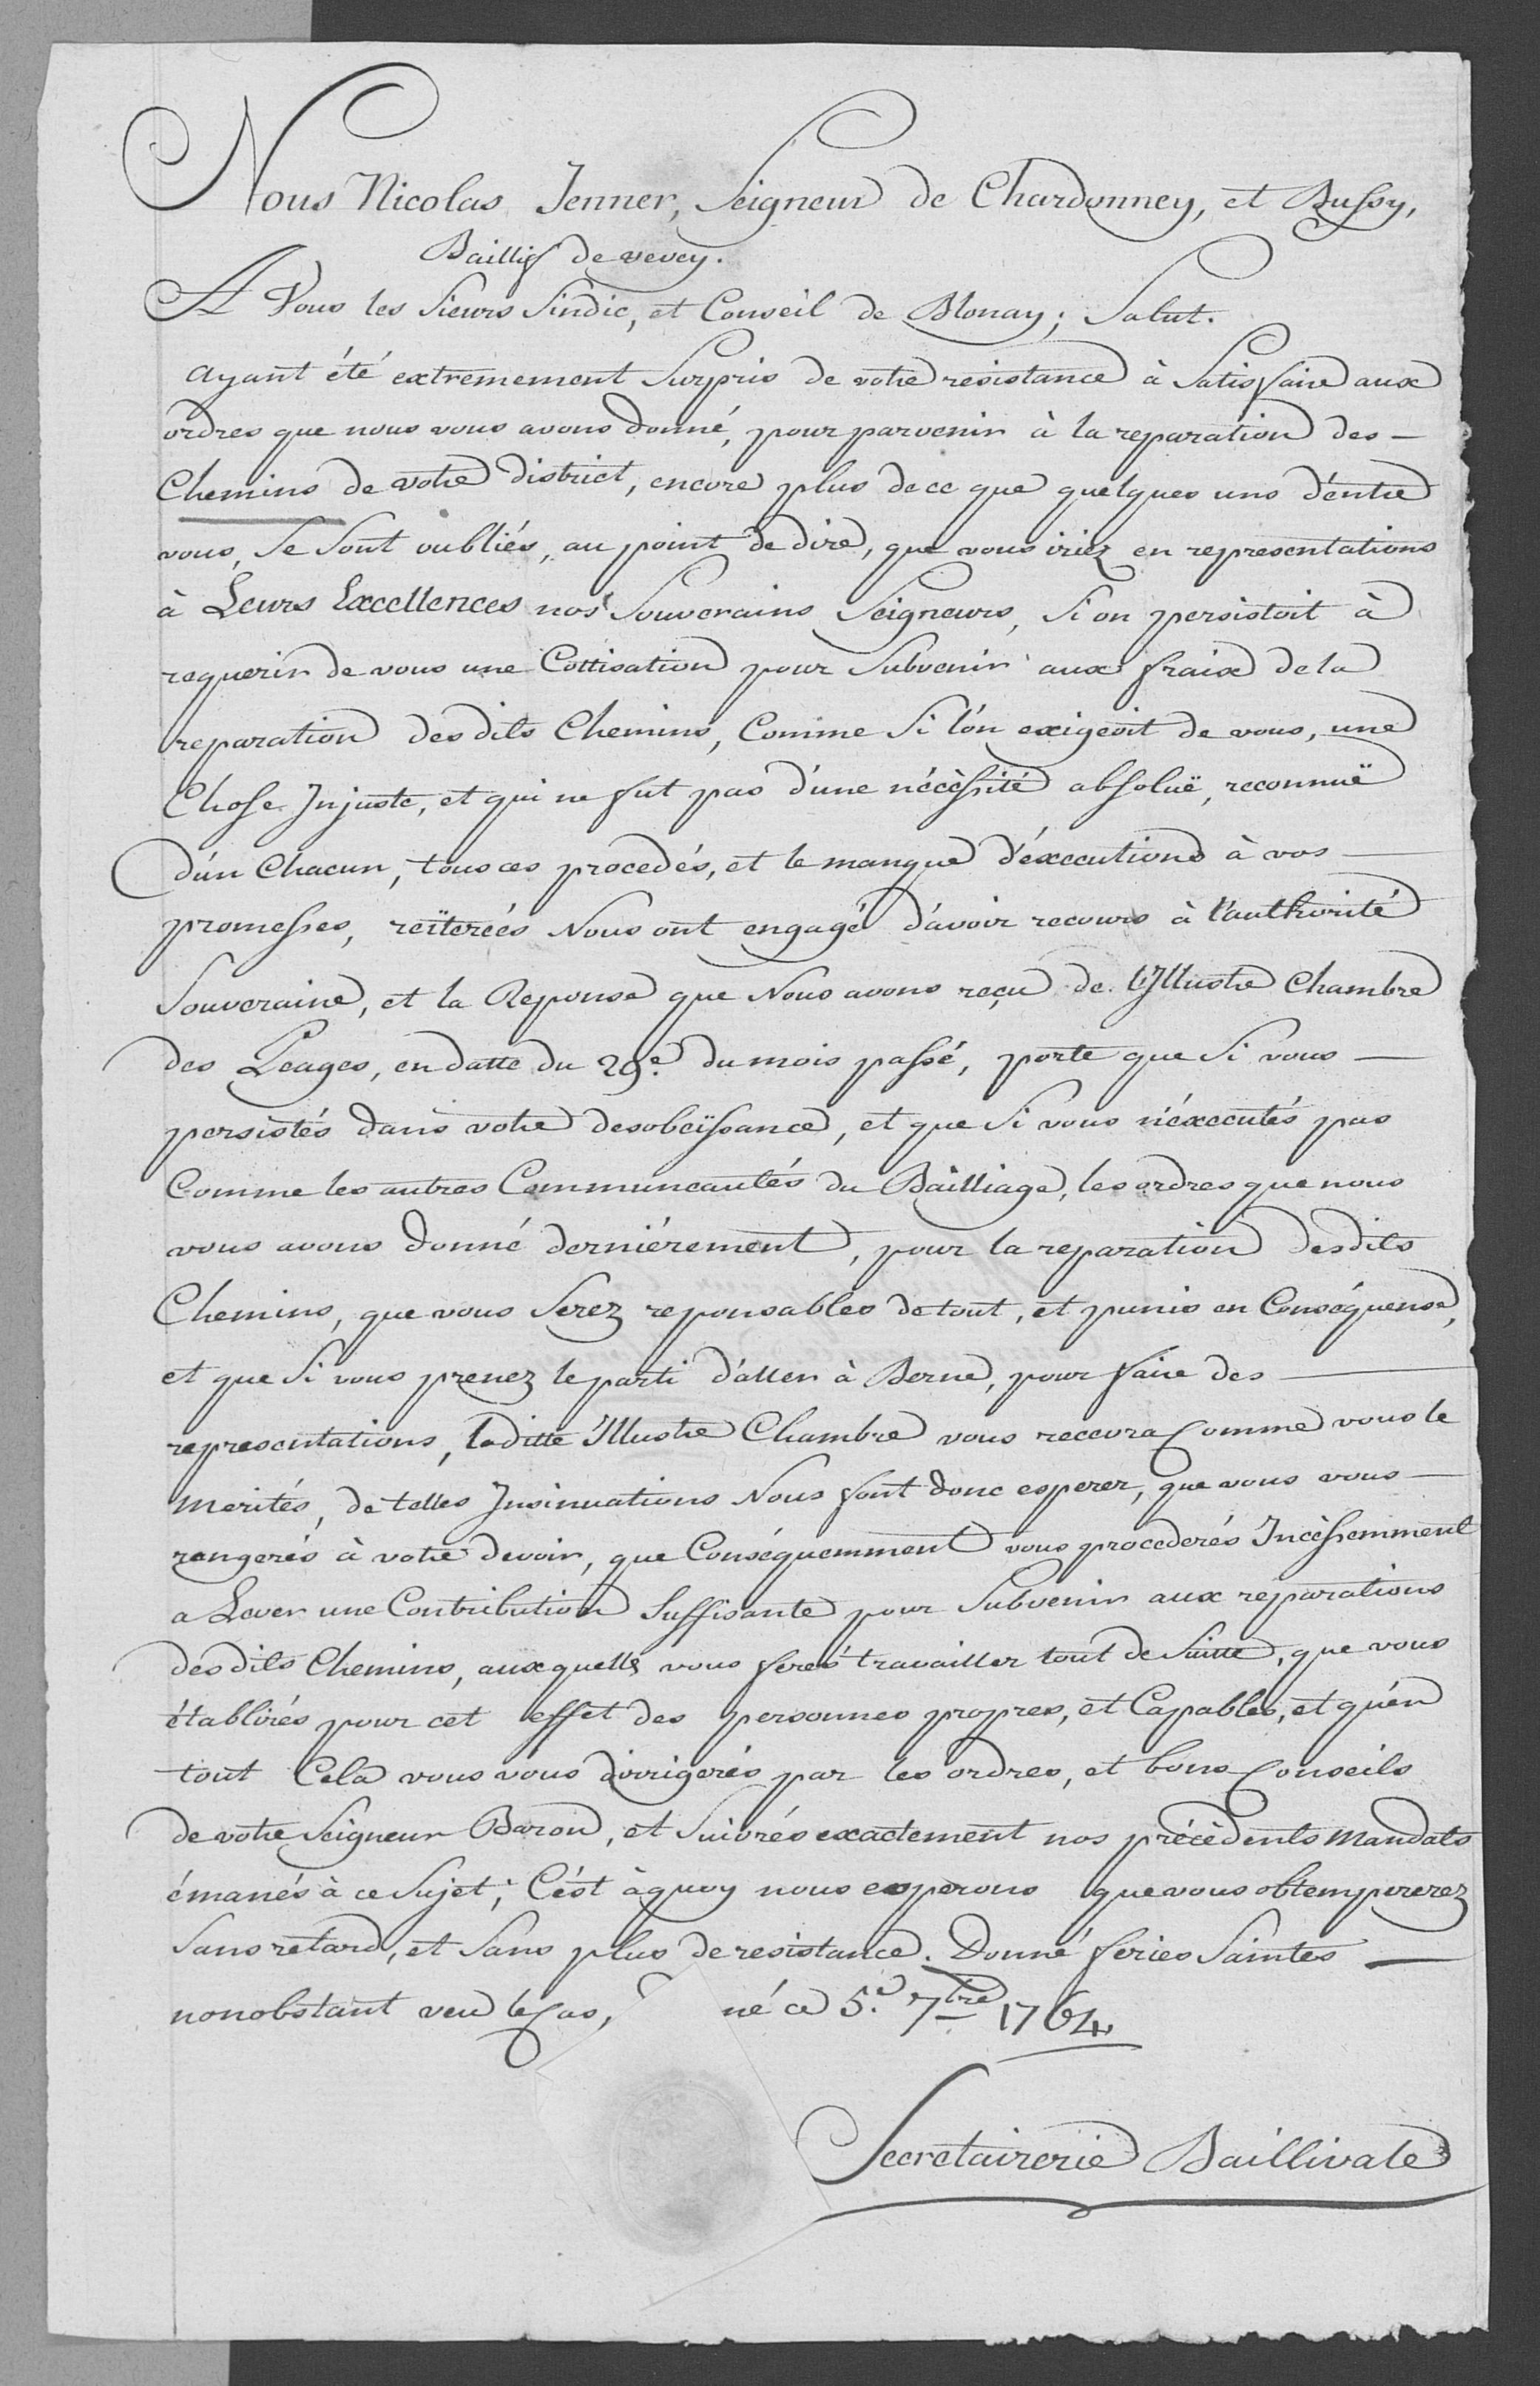 Nous Nicolas Jenner, Seigneur de Chardonney, et Bussy,
Baillif de vevey.
A Vous les Sieurs Sindic, et Conseil de Blonay; Salut.
Ayant été extremement Surpris de votre resistance à Satisfaire aux
ordres que nous vous avons donné, pour parvenir à la reparation des —
Chemins de votre district, encore plus de ce que quelques uns d'entre
vous, Se Sont oubliés, au point de dire, que vous iriez en representations
à Leurs Excellences nos Souverains Seigneurs, Si on persistoit à
requerir de vous une Cottisation pour Subvenir aux fraix de la
reparation desdits Chemins, Comme Si l'on exigeoit de vous, une
Chose Injuste, et qui ne fut pas d'une nécèssité absoluë, reconnuë
d'un Chacun, tous ces procedés, et le manque d'éxecutions à vos —
promesses, reïterées Nous ont engagé d'avoir recours à l'authorité
Souveraine, et la Reponse que Nous avons reçu de l'Illustre Chambre
des Peages, en datte du 29e. du mois passé, porte que Si vous —
persistés dans votre desobeïssance, et que Si vous n'éxecutés pas
Comme les autres Communeautés du Bailliage, les ordres que nous
vous avons donné derniérement, pour la reparation desdits
Chemins, que vous Serez reponsables de tout, et punis en Conséquense,
et que Si vous prenez le parti d'aller à Berne, pour faire des —
representations, laditte Illustre Chambre vous recevra Comme vous le
merités, de telles Insinuations Nous font donc esperer, que vous vous —
rangerés à votre devoir, que Conséquemment vous procederés Incèssemment
a Lever une Contribution Suffisante pour Subvenir aux reparations
desdits Chemins, auxquells vous ferés travailler tout de Suitte, que vous
établirés pour cet effet des personnes propres, et Capables, et qu'en
tout Cela vous vous dirrigerés par les ordres, et bons Conseils
de votre Seigneur Baron, et Suivrés exactement nos précèdents Mandats
émanés à ce Sujet; C'est àquoy nous esperons que vous obtempererez
Sans retard, et Sans plus de resistance. Donné feries Saintes —
nonobstant veu le Cas, né ce 5e. 7bre 1764
Secretairerie Baillivale